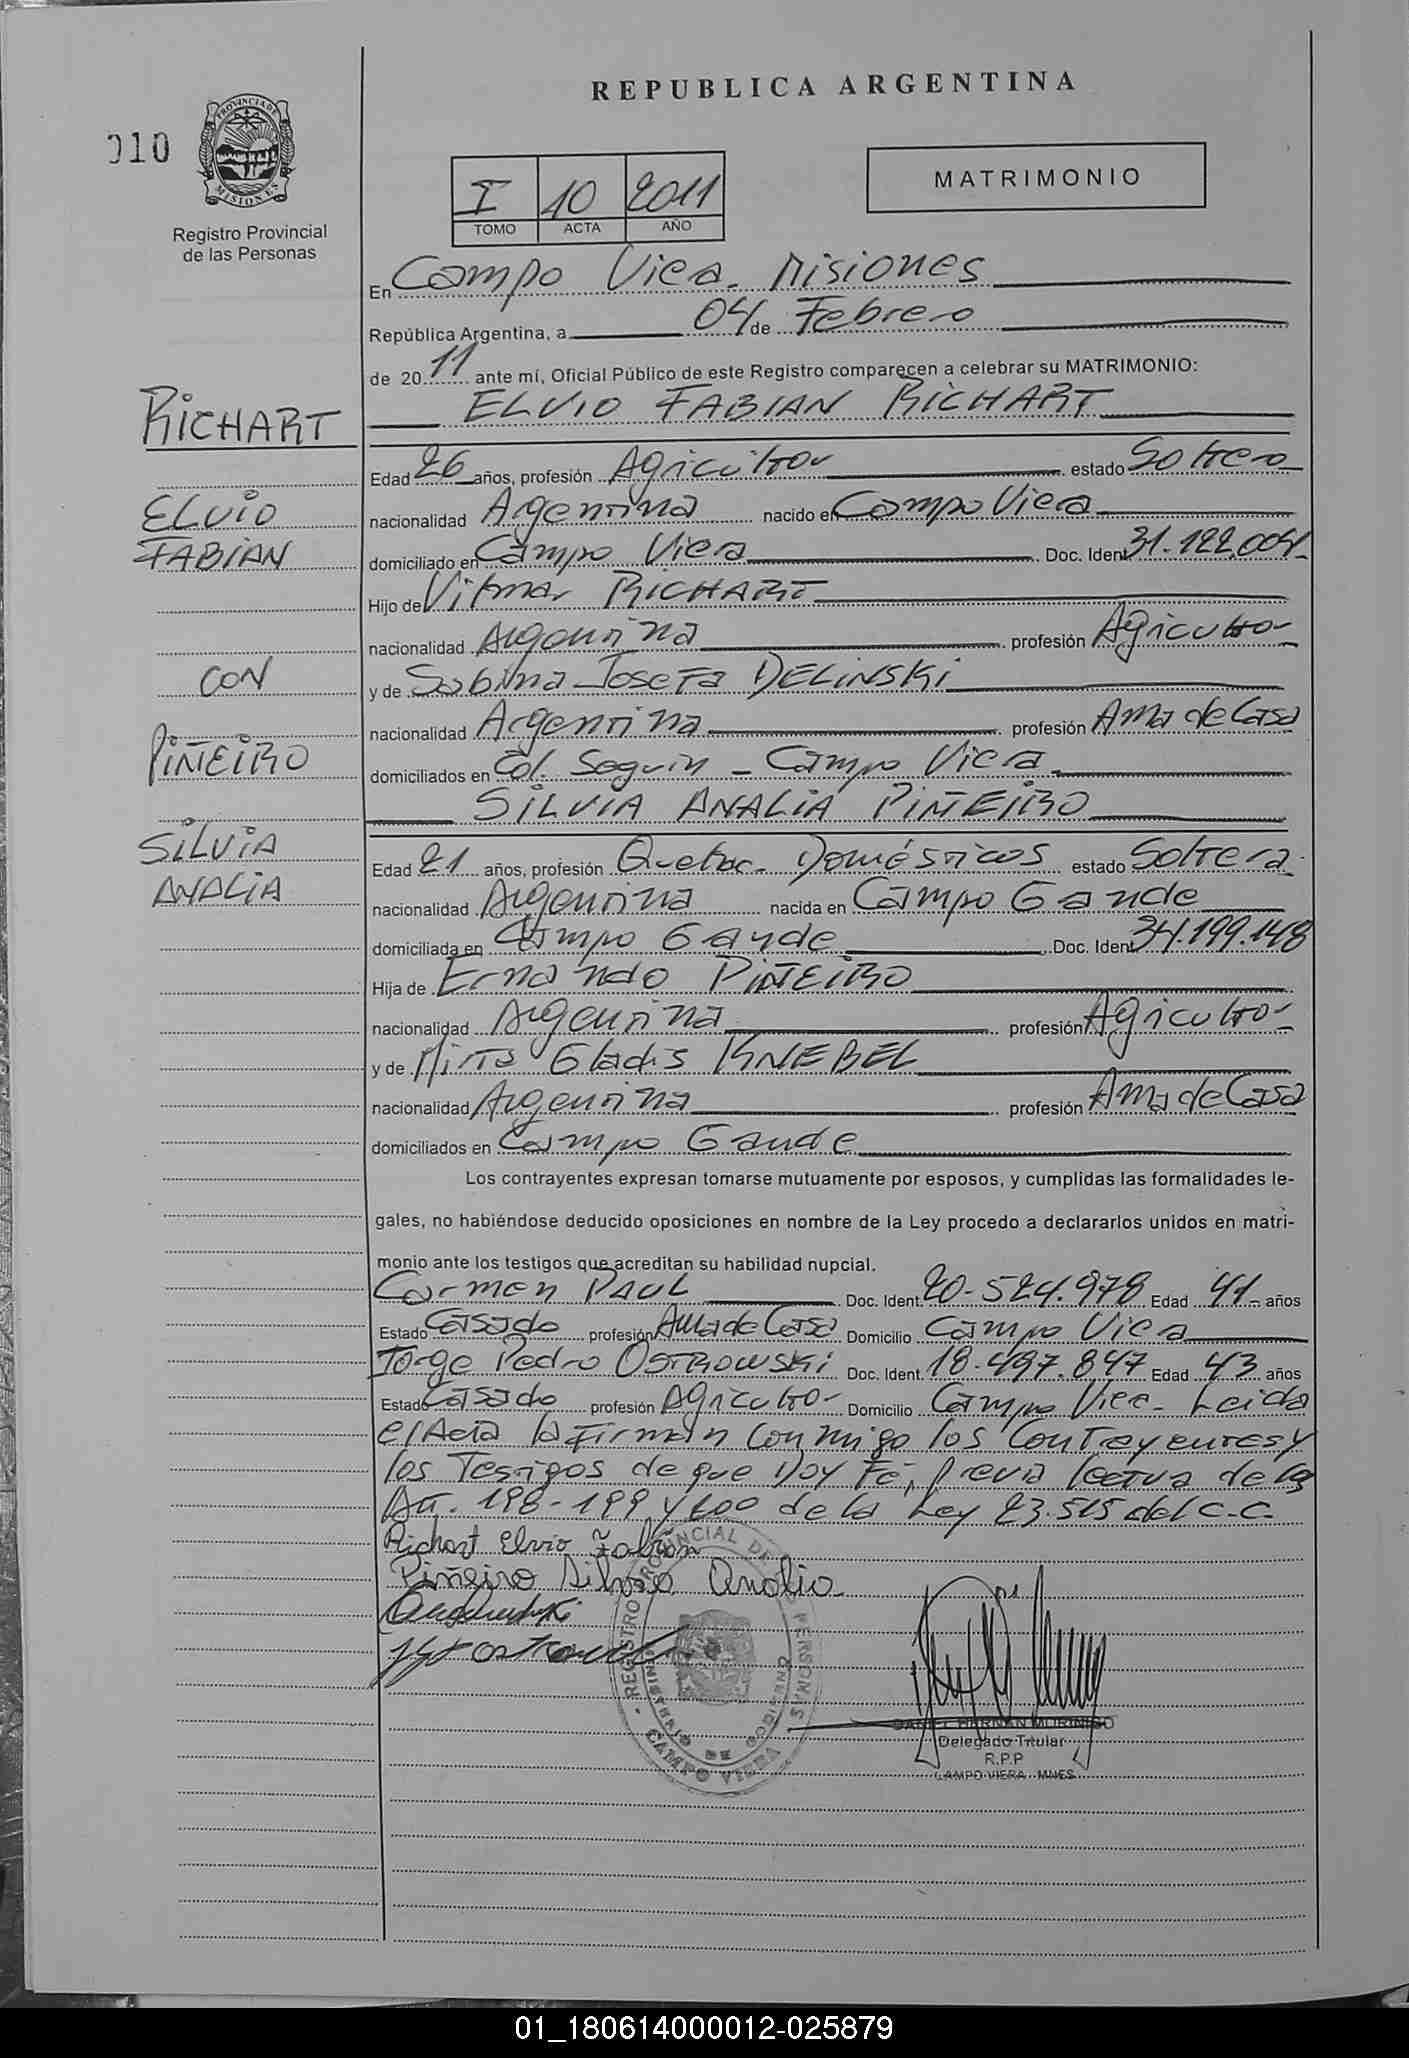 REPUBLICA ARGENTINA
010
PROVINCIA DE MISIONES
Registro Provincial
de las Personas
MATRIMONIO
I 10 2011
TOMO ACTA AÑO
En Campo Viera - Misiones
República Argentina, a 04 de Febrero
de 2011 ante mí, Oficial Público de este Registro comparecen a celebrar su MATRIMONIO:
RICHART
ELVIO FABIAN RICHART
Edad 26 años, profesión Agricultor estado Soltero
ELVIO
nacionalidad Argentina nacido en Campo Viera
FABIAN
domiciliado en Campo Viera Doc. Ident. 31.122.004
Hijo de Vilmar RICHART
nacionalidad Argentina profesión Agricultor
CON
y de Sabina Josefa DELINSKI
nacionalidad Argentina profesión Ama de Casa
PIÑEIRO
domiciliados en Col. Seguin - Campo Viera
SILVIA ANALIA PIÑEIRO
SILVIA
Edad 21 años, profesión Quehac. Domésticos estado Soltera
ANALIA
nacionalidad Argentina nacida en Campo Gande
domiciliada en Campo Gande Doc. Ident. 34.199.148
Hija de Ernando PIÑEIRO
nacionalidad Argentina profesión Agricultor
y de Mirta Gladis KNEBEL
nacionalidad Argentina profesión Ama de Casa
domiciliados en Campo Gande
Los contrayentes expresan tomarse mutuamente por esposos, y cumplidas las formalidades le-
gales, no habiéndose deducido oposiciones en nombre de la Ley procedo a declararlos unidos en matri-
monio ante los testigos que acreditan su habilidad nupcial.
Carmen PAUL Doc. Ident. 20.524.978 Edad 41 años
Estado Casado profesión Ama de Casa Domicilio Campo Viera
Jorge Pedro OSTROWSKI Doc. Ident. 18.497.847 Edad 43 años
Estado Casado profesión Agricultor Domicilio Campo Viera - Leida
el Acta la Firman conmigo los Contrayentes y
los Testigos de que Doy Fe, previa lectura de los
Art. 198-199 y 200 de la Ley 23.515 del C.C.
Richart Elvio Fabián
Piñeiro Silvia Analia
REGISTRO PROVINCIAL DE PERSONAS
MINISTERIO DE
CAMPO VIERA
DANIEL HERNAN MURINIGO
Delegado Titular
R.P.P
CAMPO VIERA - MNES
01_180614000012-025879